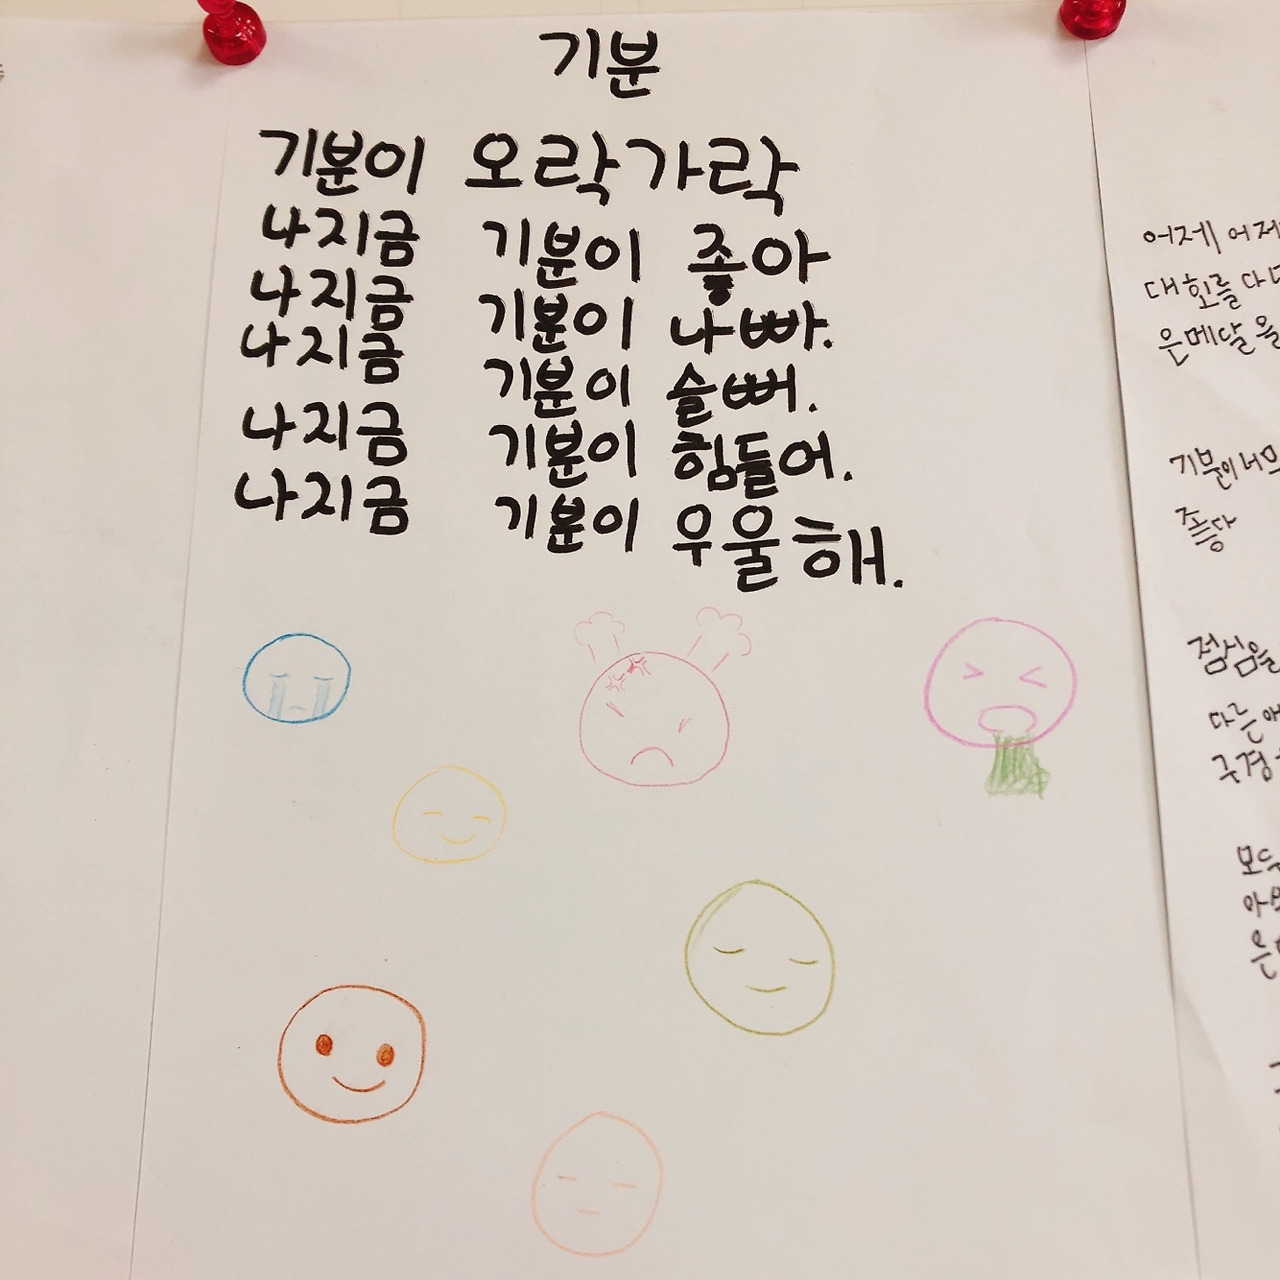 기분
기분이 오락가락
나지금 기분이 좋아
나지금 기분이 나빠.
나지금 기분이 슬뻐.
나지금 기분이 힘들어.
나지금 기분이 우울해.
어제 어제
대회를
은메달을
기분이 너무
좋당
점심을
다른
구경
모두